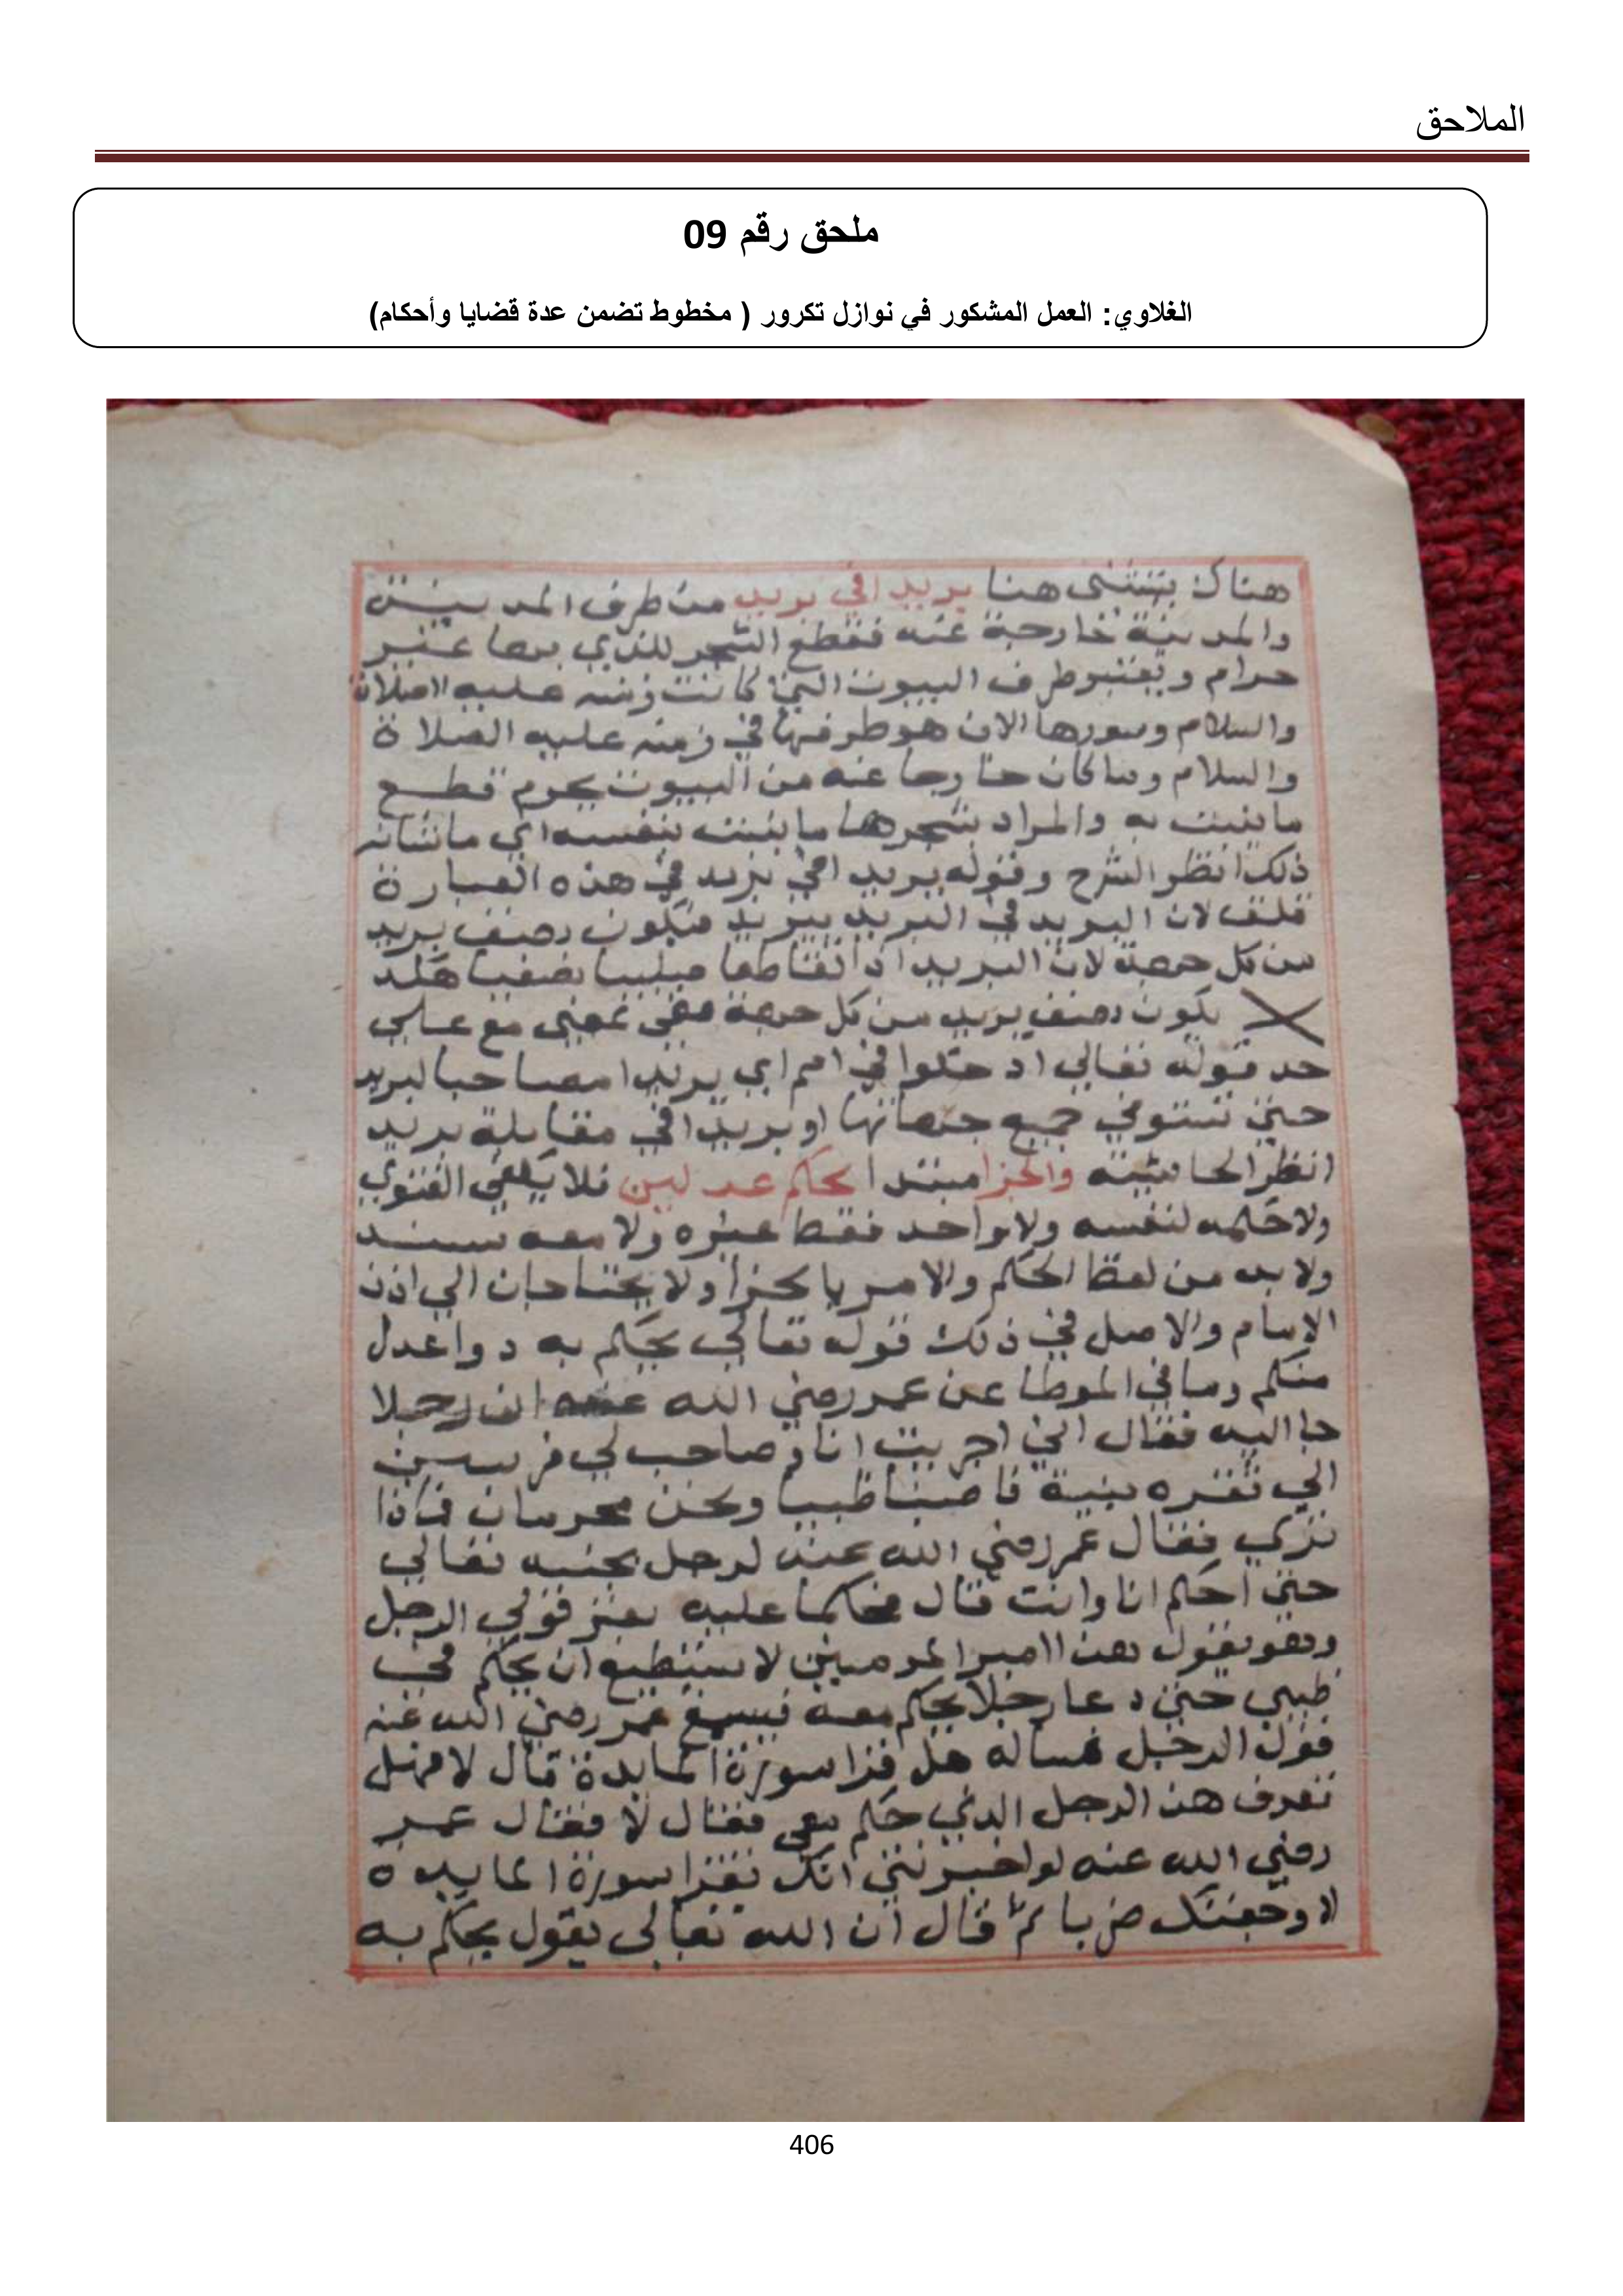 الملاحق
ملحق رقم 09
الغلاوي: العمل المشكور في نوازل تكرور ( مخطوط تضمن عدة قضايا وأحكام)
هناك يستثنى هنا بريدا في بريد من طرف المدينة
والمدينة خارجة عنه فقطع الشجر للذي بها غير
حرام ويعتبر طرف البيوت التي كانت زمنه عليه الصلاة
والسلام وسورها الان هو طرفها في زمنه عليه الصلاة
والسلام وما كان خارجا عنه من البيوت يحرم قطع
ما ينبت به والمراد بشجرها ما ينبت بنفسه اي ما شانه
ذلك انظر الشرح وقوله بريدا في بريد في هذه العبارة
قلق لان البريد في البريد ببريد فيكون نصف بريد
من كل جهة لان البريد اذا تقاطعا
يكون نصف بريد من كل جهة ففي بمعنى مع على
حد قوله تعالى ادخلوا في امم اي بريدا مصاحبا لبريد
حتى تستوفي جميع جهاتها او بريدا في مقابلة بريد
انظر الحاشية والجزا مبتدا بحكم عدلين فلا يكفي الفتوى
ولا حكمه لنفسه ولا بواحد فقط غيره ولا معه
ولا بد من لفظ الحكم والامر بالجزا ولا يحتاجان الى اذن
الامام والاصل في ذلك قوله تعالى يحكم به ذوا عدل
منكم وما في الموطا عن عمر رضي الله عنه ان رجلا
جا اليه فقال اني اجريت انا وصاحب لي فرسين
الى ثغره ثنية فاصبنا ظبيا ونحن محرمان فماذا
ترى فقال عمر رضي الله عنه لرجل بجنبه تعالى
حتى احكم انا وانت قال فحكما عليه بعنز فولى الرجل
وهو يقول هذا امير المومنين لا يستطيع ان يحكم في
ظبي حتى دعا رجلا يحكم معه فسمع عمر رضي الله عنه
قول الرجل فساله هل تقرا سورة المايدة قال لا فهل
تعرف هذا الرجل الذي حكم معي فقال لا فقال عمر
رضي الله عنه لو اخبرتني انك تقرا سورة المايدة
لاوجعتك ضربا ثم قال ان الله تعالى يقول يحكم به
406